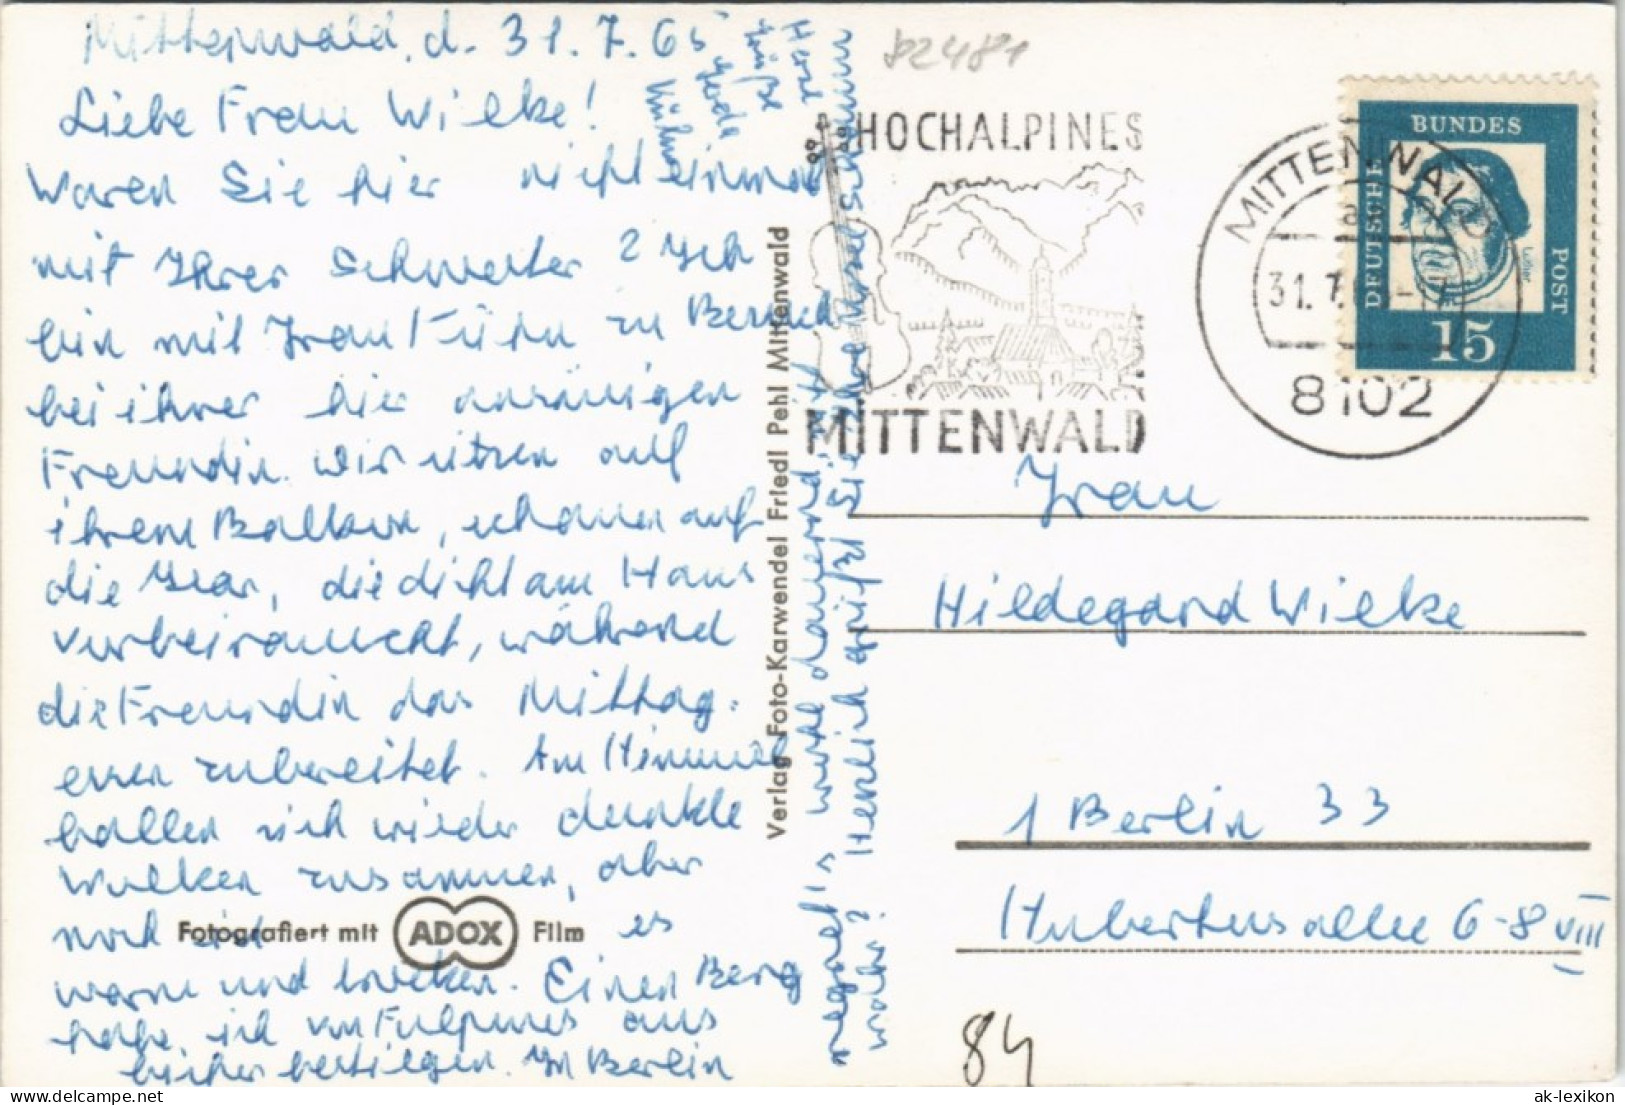 Mittenwald, d. 31.7.65
Liebe Frau Wielke!
Waren Sie hier nicht einmal
mit Ihrer Schwester? Ich
bin mit Frau Kühn zu Besuch
bei ihrer hier ansässigen
Freundin. Wir sitzen auf
ihrem Balkon, schauen auf
die Isar, die dicht am Haus
vorbeirauscht, während
die Freundin das Mittag-
essen zubereitet. Am Himmel
ballen sich wieder dunkle
Wolken zusammen, aber
noch ist es
warm und trocken. Einen Berg
habe ich von aus
bisher bestiegen. In Berlin
"regnet"s wohl dauernd, nicht
wahr? Herzlich grüßt Sie Ihre
Herzl.
Grüße
Gerda
Kühn
Fotografiert mit ADOX Film
Verlag Foto-Karwendel Friedl Pehl Mittenwald
82481
HOCHALPINES
MITTENWALD
MITTENWALD
31.7.
8102
DEUTSCHE
BUNDES
POST
Luther
15
Frau
Hildegard Wielke
1 Berlin 33
Hubertusallee 6-8 VIII
84
ak-lexikon